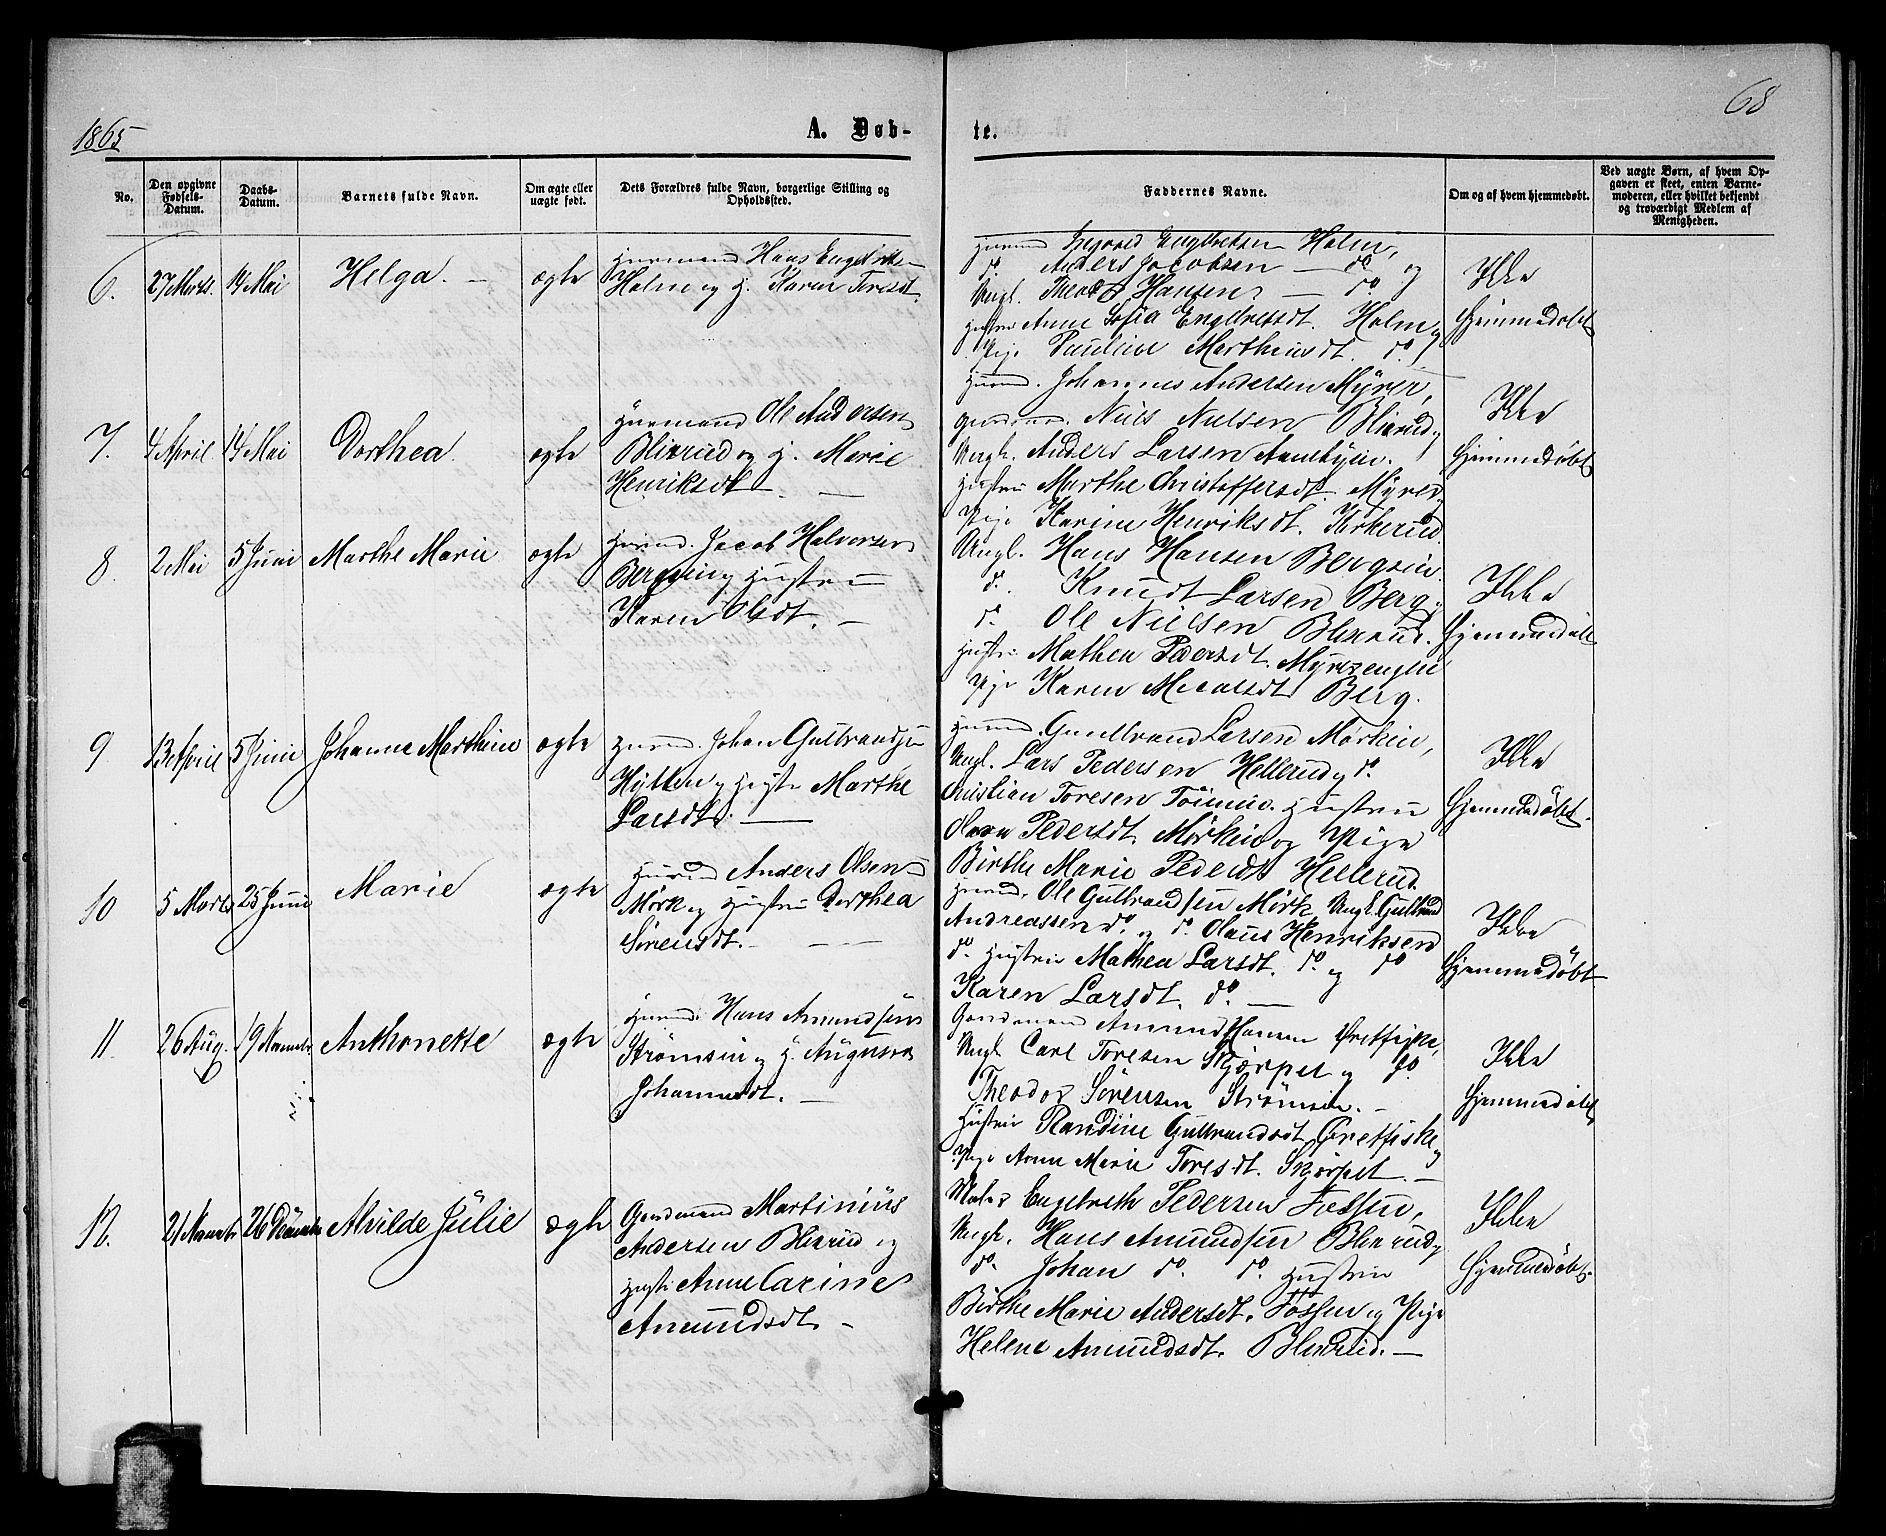 1865
A. Døb-
te.
68
No.
Den opgivne Fødsels-Datum.
Daabs-Datum.
Barnets fulde Navn.
Om ægte eller uægte født.
Dets Forældres fulde Navn, borgerlige Stilling og Opholdssted.
Faddernes Navne.
Om og af hvem hjemmedøbt.
Ved uægte Børn, af hvem Op-
gaven er skeet, enten Barne-
moderen, eller hvilket bekjendt
og troværdigt Medlem af
Menigheden.
6. 27 Marts. 14 Mai Helga. — ægte
Huusmand Hans Engebretsen
Holm og H. Karen Toresdt.
Huusmand Engebretsen Holm,
do. Anders Jacobsen — do og
Ungk. Theodor Hansen — do
Hustru Anne Sofia Engebretsdt. Holm og
Pige Pauline Marthinsdt. do.
Ikke
Hjemmedøbt
7. 4 April 14 Mai Dorthea. ægte
Huusmand Ole Andersen
Blixrud og H. Marie
Henriksdt. —
Huusmd. Johannes Andersen Myrer,
Niels Nielsen Blixrud,
Ungk. Anders Larsen
Hustru Marthe Christoffersdt. Myrer,
Pige Karine Henriksdt. Kirkerud.
Ikke
Hjemmedøbt
8. 2 Mai 5 Juni Marthe Marie ægte
Huusmd. Jacob Halvorsen
Bergsin og Hustru
Karen Olsdt. —
Ungk. Hans Hansen Bergsin.
do. Knudt Larsen Berg,
do. Ole Nielsen Blixrud.
Hustru Mathea Pedersdt. Myrezengen
Pige Karen Berg.
Ikke
Hjemmedøbt
9 13 April 5 Juni Johanne Marthine ægte
Huusmd. Johan Gulbrandsen
Hytten og Hustru Marthe
Larsdt. —
Huusmd. Gundbrand Larsen Mørkin,
Ungk. Lars Pedersen Hellerud og do.
Christian Toresen Hustru
Pedersdt. Mørkin og Pige
Birthe Marie Pedersdt. Hellerud.
Ikke
Hjemmedøbt.
10 5 Marts 25 Juni Marie ægte
Huusmd Anders Olsen
Mørk og Hustru Dorthea
Sørensdt. — —
Huusmd. Ole Gulbrandsen Mørk Ungk. Gulbrand
Andreassen do. og do. Olaus Henriksen
do. Hustru Mathea Larsdt. do. og do
Karen Larsdt. do. —
Ikke
Hjemmedøbt
11. 26 Aug. 19 Novembr Anthonette ægte
Huusmd. Hans Amundsen
Strømsin og H. Augusta
Johannesdt. —
Gaardmand Amund Hansen
Ungk Carl Toresen Skjørpet og do.
Theodor Sørensen Strømsin. —
Hustru Randine Gulbrandsdt. og
Pige Anne Marie Toresdt. Skjørpet. —
Ikke
Hjemmedøbt
12. 21 Novembr 26 Decembr Alvilde Julie ægte
Gaardmand Martinius
Andersen Blixrud og
Hustru Anne Carine
Amundsdt. —
Engebreth Pedersen Fossen,
Ungk. Hans Amundsen Blixrud,
do. Johan do. do. Hustru
Birthe Marie Andersdt. Fossen og Pige
Helene Amundsdt. Blixrud. —
Ikke
Hjemmedøbt.